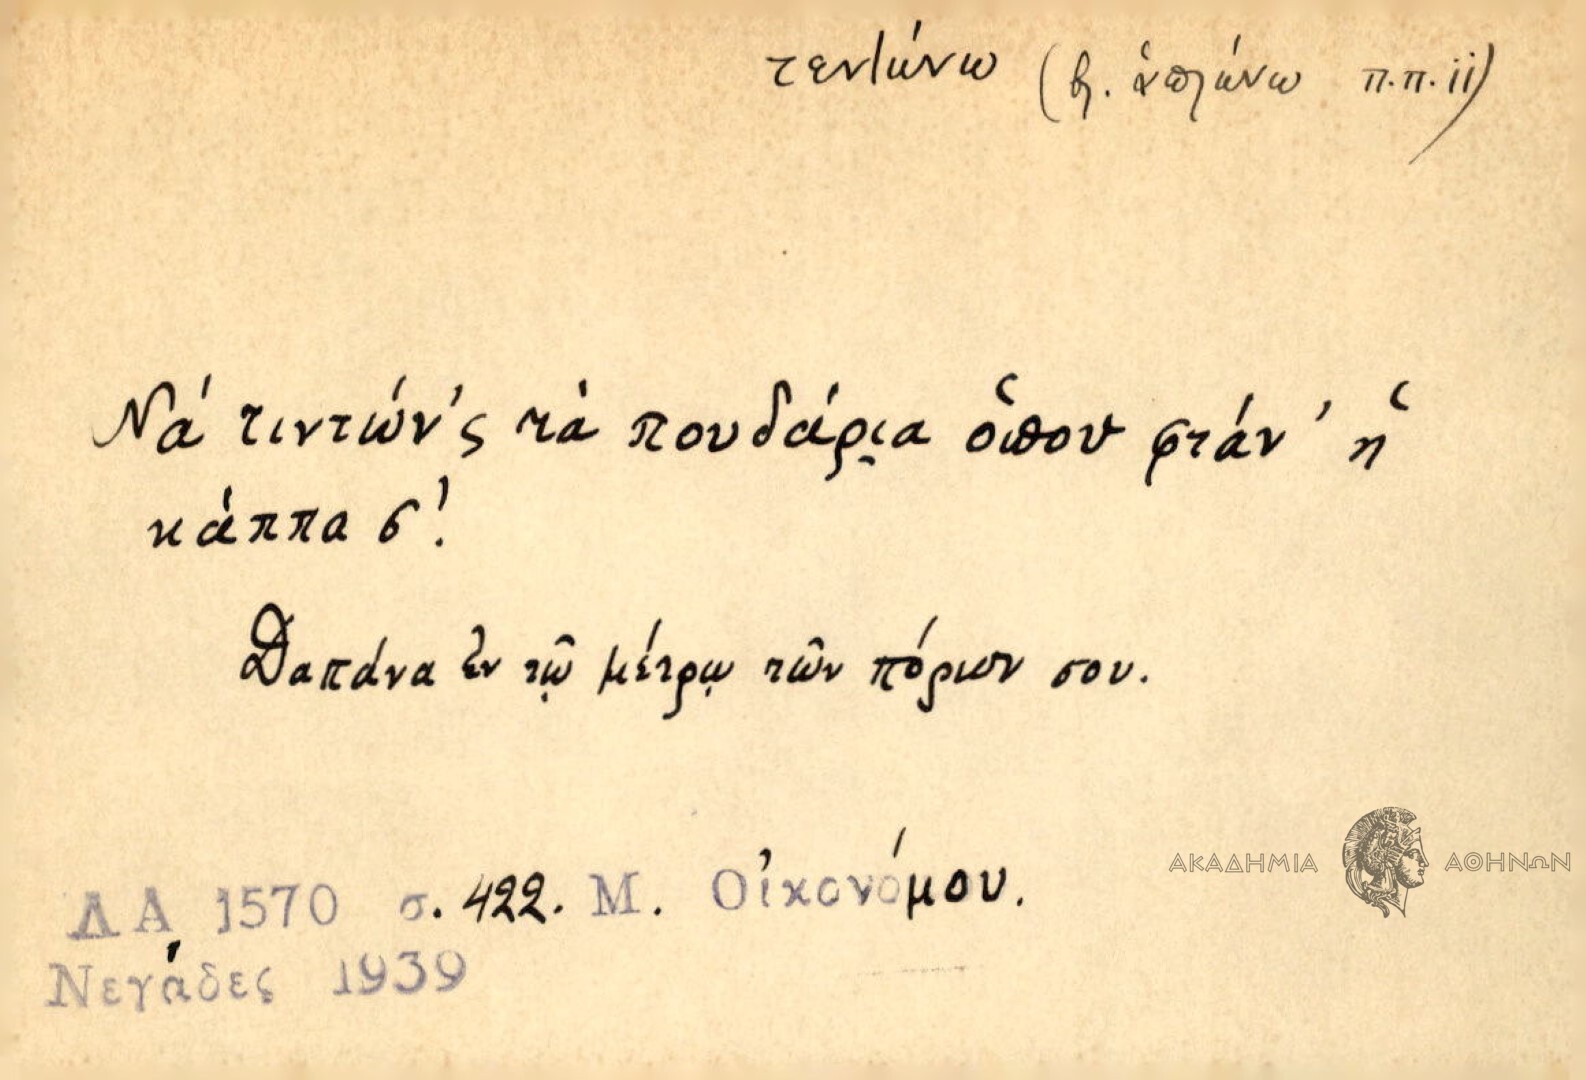 τεντώνω (βλ. ἁπλώνω π.π. ii)
Νά τιντών'ς τὰ πουδάρια ὅπου φτάν' ἡ
κάππα σ'!
Δαπάνα ἐν τῷ μέτρῳ τῶν πόρων σου.
ΑΚΑΔΗΜΙΑ ΑΘΗΝΩΝ
ΛΑ 1570 σ. 422. Μ. Οἰκονόμου.
Νεγάδες 1939